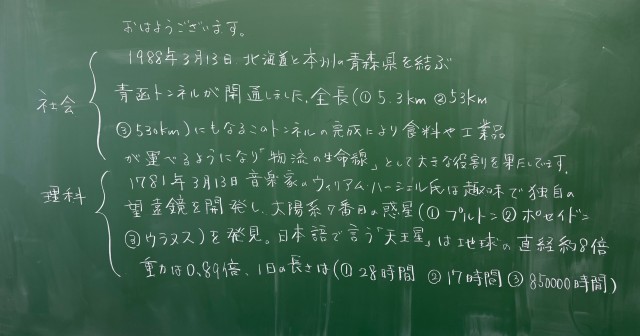 おはようございます。
1988年3月13日 北海道と本州の青森県を結ぶ
社会 青函トンネルが開通しました。全長(① 5.3km ② 53km
③ 530km)にもなるこのトンネルの完成により食料や工業品
が運べるようになり「物流の生命線」として大きな役割を果たしてます。
理科 1781年3月13日 音楽家のウィリアム・ハーシェル氏は趣味で独自の
望遠鏡を開発し、太陽系7番目の惑星(① プルトン ② ポセイドン
③ ウラヌス)を発見。日本語で言う「天王星」は地球の直経約8倍
重力は0.89倍、1日の長さは(① 28時間 ② 17時間 ③ 850000時間)